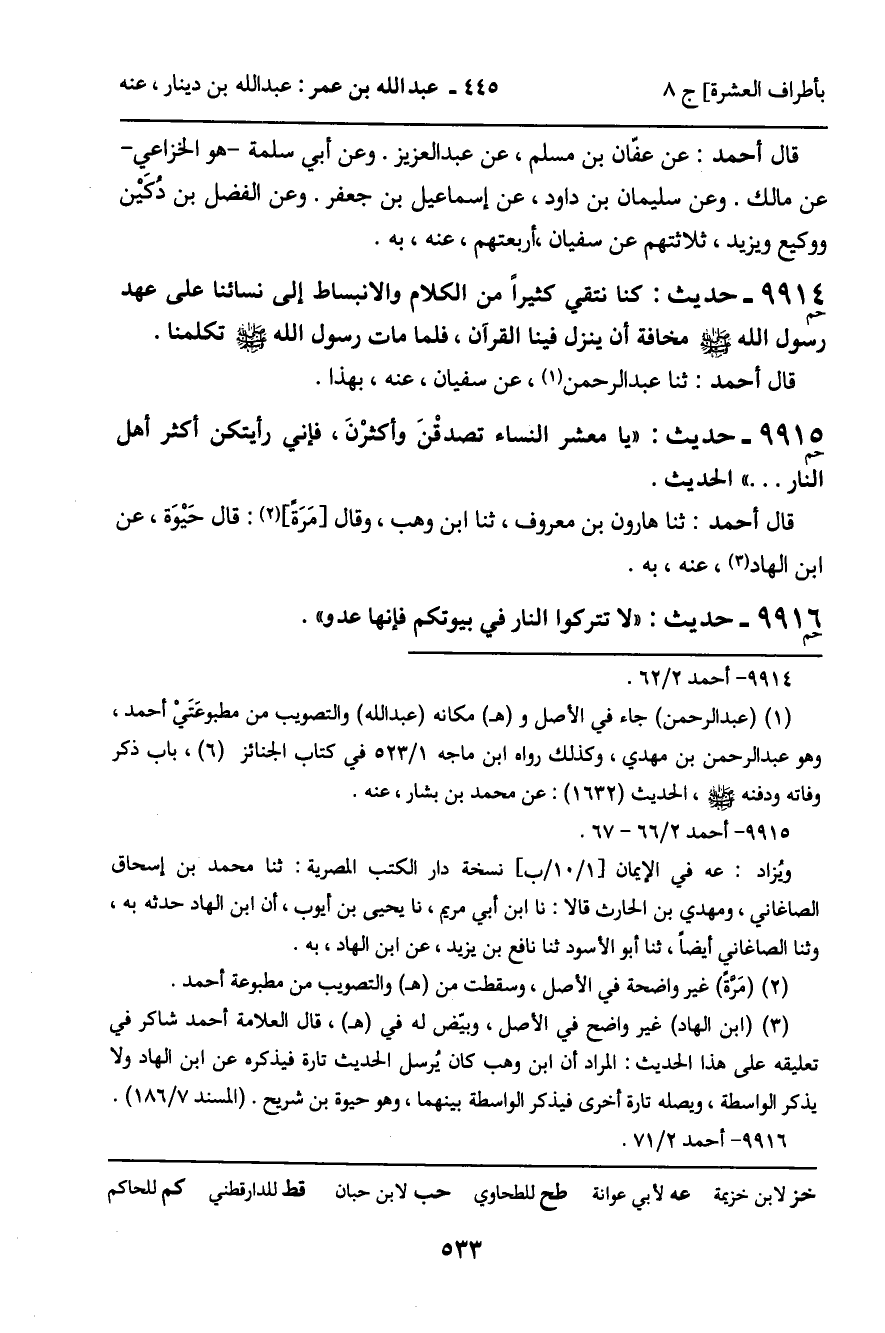 بأطراف العشرة] ج ٨ ٤٤٥ ـ عبدالله بن عمر : عبدالله بن دينار ، عنه
قال أحمد : عن عفّان بن مسلم ، عن عبدالعزيز . وعن أبي سلمة -هو الخزاعي-
عن مالك . وعن سليمان بن داود ، عن إسماعيل بن جعفر . وعن الفضل بن دُكَيْن
ووكيع ويزيد ، ثلاثتهم عن سفيان ،أربعتهم ، عنه ، به .
٩٩١٤ ـ حديث : كنا نتقي كثيراً من الكلام والانبساط إلى نسائنا على عهد
حم
رسول الله ﷺ مخافة أن ينزل فينا القرآن ، فلما مات رسول الله ﷺ تكلمنا .
قال أحمد : ثنا عبدالرحمن(١) ، عن سفيان ، عنه ، بهذا .
٩٩١٥ ـ حديث : «يا معشر النساء تصدقْنَ وأكثرْنَ ، فإني رأيتكن أكثر أهل
حم
النار . . .» الحديث .
قال أحمد : ثنا هارون بن معروف ، ثنا ابن وهب ، وقال [مَرَةً](٢) : قال حَيْوَة ، عن
ابن الهاد(٣) ، عنه ، به .
٩٩١٦ ـ حديث : «لا تتركوا النار في بيوتكم فإنها عدو» .
حم
٩٩١٤- أحمد ٦٢/٢ .
(١) (عبدالرحمن) جاء في الأصل و (هـ) مكانه (عبدالله) والتصويب من مطبوعَتَيْ أحمد ،
وهو عبدالرحمن بن مهدي ، وكذلك رواه ابن ماجه ٥٢٣/١ في كتاب الجنائز (٦) ، باب ذكر
وفاته ودفنه ﷺ ، الحديث (١٦٣٢) : عن محمد بن بشار ، عنه .
٩٩١٥- أحمد ٦٦/٢ - ٦٧ .
ويُزاد : عه في الإيمان [١٠/١/ب] نسخة دار الكتب المصرية : ثنا محمد بن إسحاق
الصاغاني ، ومهدي بن الحارث قالا : نا ابن أبي مريم ، نا يحيى بن أيوب ، أن ابن الهاد حدثه به ،
وثنا الصاغاني أيضاً ، ثنا أبو الأسود ثنا نافع بن يزيد ، عن ابن الهاد ، به .
(٢) (مَرَّةً) غير واضحة في الأصل ، وسقطت من (هـ) والتصويب من مطبوعة أحمد .
(٣) (ابن الهاد) غير واضح في الأصل ، وبيّض له في (هـ) ، قال العلامة أحمد شاكر في
تعليقه على هذا الحديث : المراد أن ابن وهب كان يُرسل الحديث تارة فيذكره عن ابن الهاد ولا
يذكر الواسطة ، ويصله تارة أخرى فيذكر الواسطة بينهما ، وهو حيوة بن شريح . (المسند ١٨٦/٧) .
٩٩١٦- أحمد ٧١/٢ .
خز لابن خزيمة عه لأبي عوانة طح للطحاوي حب لابن حبان قط للدارقطني كم للحاكم
٥٣٣